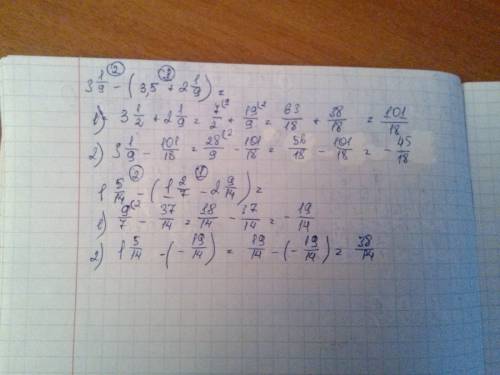 3 1/9 ② - ( 3,5 + ① 2 1/9 ) =
1) 3 1/2 + 2 1/9 = 7/2 + 19/9 (2 = 63/18 + 38/18 = 101/18
2) 3 1/9 - 101/18 = 28/9 (2 - 101/18 = 56/18 - 101/18 = - 45/18
1 5/14 ② - ( 1 2/7 ① - 2 9/14 ) =
1) 9/7 (2 - 37/14 = 38/14 - 37/14 = - 19/14
2) 1 5/14 - ( - 19/14 ) = 19/14 - ( - 19/14 ) = 38/14